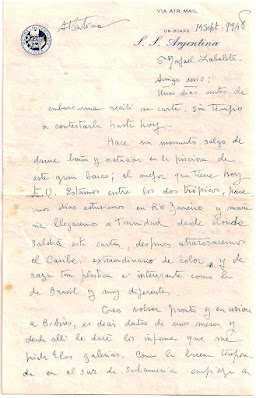 VIA AIR MAIL
ON BOARD 14 Sept. 1948
S. S. Argentina
Rafael Zabaleta
Amigo mio:
Unos dias antes de
embarcarme recibi su carta, sin tiempo
a contestarla hasta hoy.
Hace un momento salgo de
darme baño y natacion en la piscina de
este gran barco; el mejor que tiene hoy
E.U. Estamos entre los dos tropicos, hace
unos dias estuvimos en Rio Janeiro y
llegaremos a Trinidad desde donde
saldrá esta carta, despues atravesaremos
el Caribe, extraordinario de color y de
raza tan plastica e interesante como la
de Brasil y muy diferentes.
Creo volver pronto y en avion
a B. Aires, es decir dentro de unos meses y
desde alli le daré los informes que me
pide de las galerias. Como la buena tempora-
da en el sur de Sudamerica empieza en